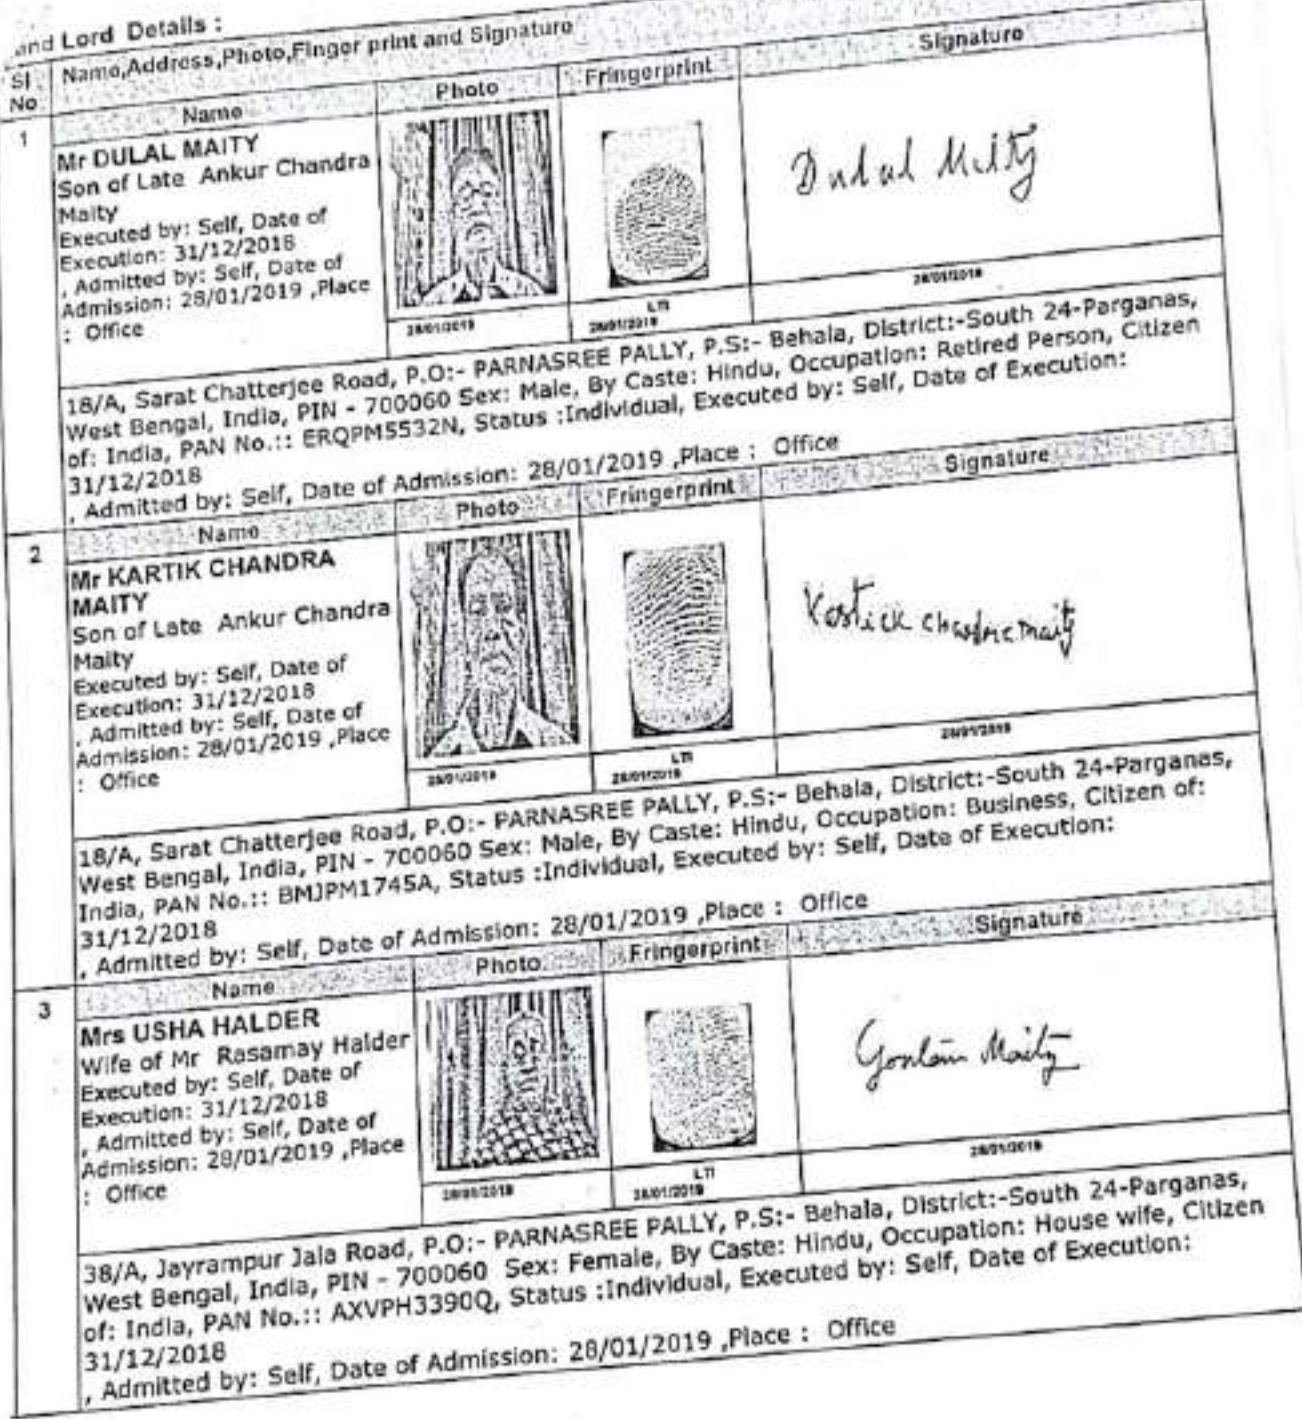 and Lord Details :
Sl No Name,Address,Photo,Finger print and Signature
1 Name Photo Fringerprint Signature
Mr DULAL MAITY
Son of Late Ankur Chandra
Maity
Executed by: Self, Date of
Execution: 31/12/2018
, Admitted by: Self, Date of
Admission: 28/01/2019 ,Place
: Office
Dulal Maity
28/01/2019
LTI
28/01/2019
28/01/2019
18/A, Sarat Chatterjee Road, P.O:- PARNASREE PALLY, P.S:- Behala, District:-South 24-Parganas,
West Bengal, India, PIN - 700060 Sex: Male, By Caste: Hindu, Occupation: Retired Person, Citizen
of: India, PAN No.:: ERQPM5532N, Status :Individual, Executed by: Self, Date of Execution:
31/12/2018
, Admitted by: Self, Date of Admission: 28/01/2019 ,Place : Office
2 Name Photo Fringerprint Signature
Mr KARTIK CHANDRA
MAITY
Son of Late Ankur Chandra
Maity
Executed by: Self, Date of
Execution: 31/12/2018
, Admitted by: Self, Date of
Admission: 28/01/2019 ,Place
: Office
Kartick Chandra Maity
28/01/2019
LTI
28/01/2019
28/01/2019
18/A, Sarat Chatterjee Road, P.O:- PARNASREE PALLY, P.S:- Behala, District:-South 24-Parganas,
West Bengal, India, PIN - 700060 Sex: Male, By Caste: Hindu, Occupation: Business, Citizen of:
India, PAN No.:: BMJPM1745A, Status :Individual, Executed by: Self, Date of Execution:
31/12/2018
, Admitted by: Self, Date of Admission: 28/01/2019 ,Place : Office
3 Name Photo Fringerprint Signature
Mrs USHA HALDER
Wife of Mr Rasamay Halder
Executed by: Self, Date of
Execution: 31/12/2018
, Admitted by: Self, Date of
Admission: 28/01/2019 ,Place
: Office
Maity
28/01/2019
LTI
28/01/2019
28/01/2019
38/A, Jayrampur Jala Road, P.O:- PARNASREE PALLY, P.S:- Behala, District:-South 24-Parganas,
West Bengal, India, PIN - 700060 Sex: Female, By Caste: Hindu, Occupation: House wife, Citizen
of: India, PAN No.:: AXVPH3390Q, Status :Individual, Executed by: Self, Date of Execution:
31/12/2018
, Admitted by: Self, Date of Admission: 28/01/2019 ,Place : Office